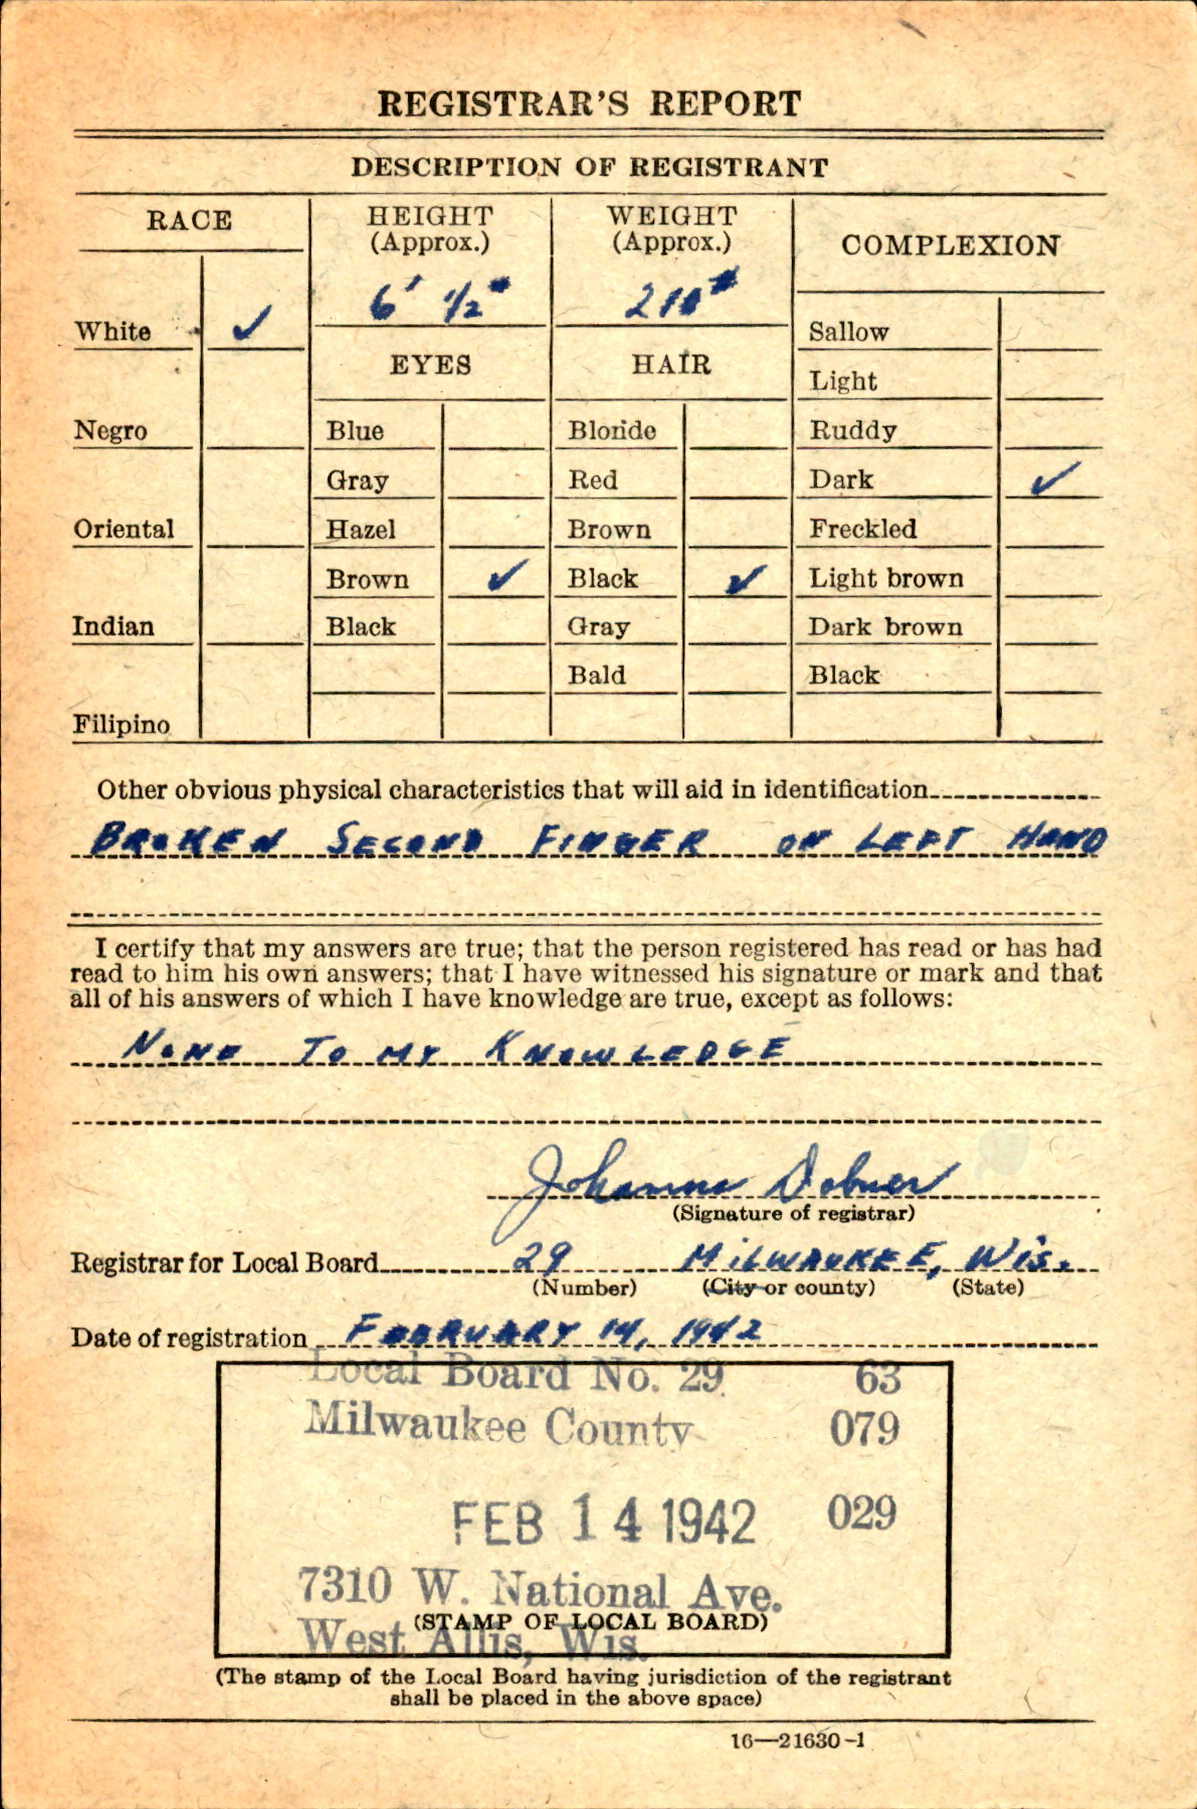 REGISTRAR'S REPORT
DESCRIPTION OF REGISTRANT
RACE
HEIGHT
(Approx.)
WEIGHT
(Approx.)
COMPLEXION
6' ½"
210#
White ✓
Sallow
EYES
HAIR
Light
Negro
Blue
Blonde
Ruddy
Gray
Red
Dark ✓
Oriental
Hazel
Brown
Freckled
Brown ✓
Black ✓
Light brown
Indian
Black
Gray
Dark brown
Bald
Black
Filipino
Other obvious physical characteristics that will aid in identification
BROKEN SECOND FINGER ON LEFT HAND
I certify that my answers are true; that the person registered has read or has had
read to him his own answers; that I have witnessed his signature or mark and that
all of his answers of which I have knowledge are true, except as follows:
NONE TO MY KNOWLEDGE
Johanna Dobner
(Signature of registrar)
Registrar for Local Board 29 MILWAUKEE, WIS.
(Number) (City or county) (State)
Date of registration FEBRUARY 14, 1942
Local Board No. 29 63
Milwaukee County 079
FEB 14 1942 029
7310 W. National Ave.
(STAMP OF LOCAL BOARD)
West Allis, Wis.
(The stamp of the Local Board having jurisdiction of the registrant
shall be placed in the above space)
16—21630-1